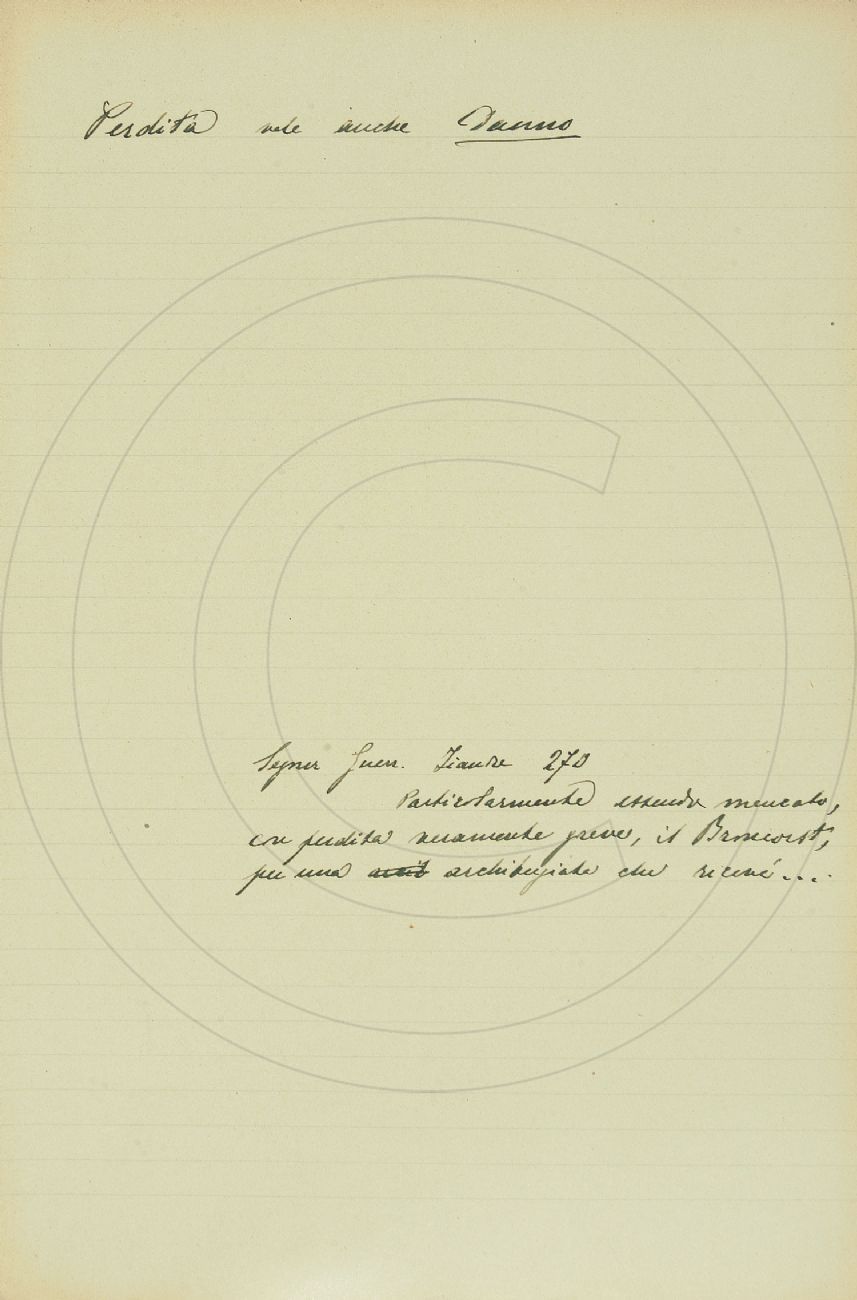 Perdita vale anche Danno
Segner Guerr. Fiandre 270
Particolarmente essendo mancato,
con perdita veramente grave, il Broncorst,
per una archibugiata che ricevé....